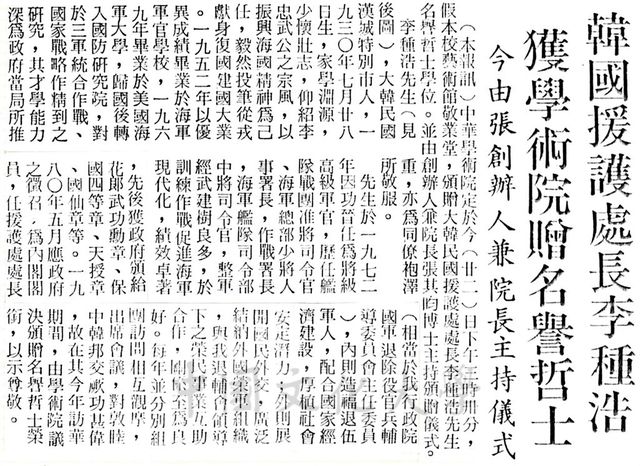 韓國援護處長李種浩
獲學術院贈名譽哲士
今由張創辦人兼院長主持儀式
（本報訊）中華學術院定於今（廿二）日下午三時卅分，
假本校藝術館敬業堂，頒贈大韓民國援護處處長李種浩先生
名譽哲士學位。並由創辦人兼院長張其昀博士主持頒贈儀式。
李種浩先生（見
後圖），大韓民國
漢城特別市人，一
九三〇年七月廿八
日生，家學淵源，
少懷壯志，仰紹李
忠武公之宗風，以
振興海國精神為己
任，毅然投筆從戎
獻身復國建國大業
。一九五二年以優
異成績畢業於海軍
軍官學校，一九六
九年畢業於美國海
軍大學，歸國後轉
入國防研究院，對
於三軍統合作戰、
國家戰略作精到之
研究，其才學能力
深為政府當局所推
重，亦為同僚袍澤
所敬服。
先生於一九七二
年因功晉任為將級
高級軍官，歷任艦
隊戰團准將司令官
、海軍總部少將人
事署長，作戰署長
，海軍艦隊司令部
中將司令官，整軍
經武建樹良多，於
訓練作戰促進海軍
現代化，績效卓著
，先後獲政府頒給
花郎武功勳章、保
國四等章、天授章
、國仙章等。一九
八〇年五月應政府
之徵召，為內閣閣
員，任援護處處長
（相當於我行政院
國軍退除役官兵輔
導委員會主任委員
），內則造福退伍
軍人，配合國家經
濟建設，厚植社會
安定潛力，外則展
開國民外交，廣泛
結納外國軍組織
，與我退輔會領導
下之榮民事業互助
合作，關係至為良
好。每年並分別組
團訪問相互觀摩，
出席會議，對敦睦
中韓邦交厥功甚偉
，故在其今年訪華
期間，由學術院議
決頒贈名譽哲士榮
銜，以示尊敬。